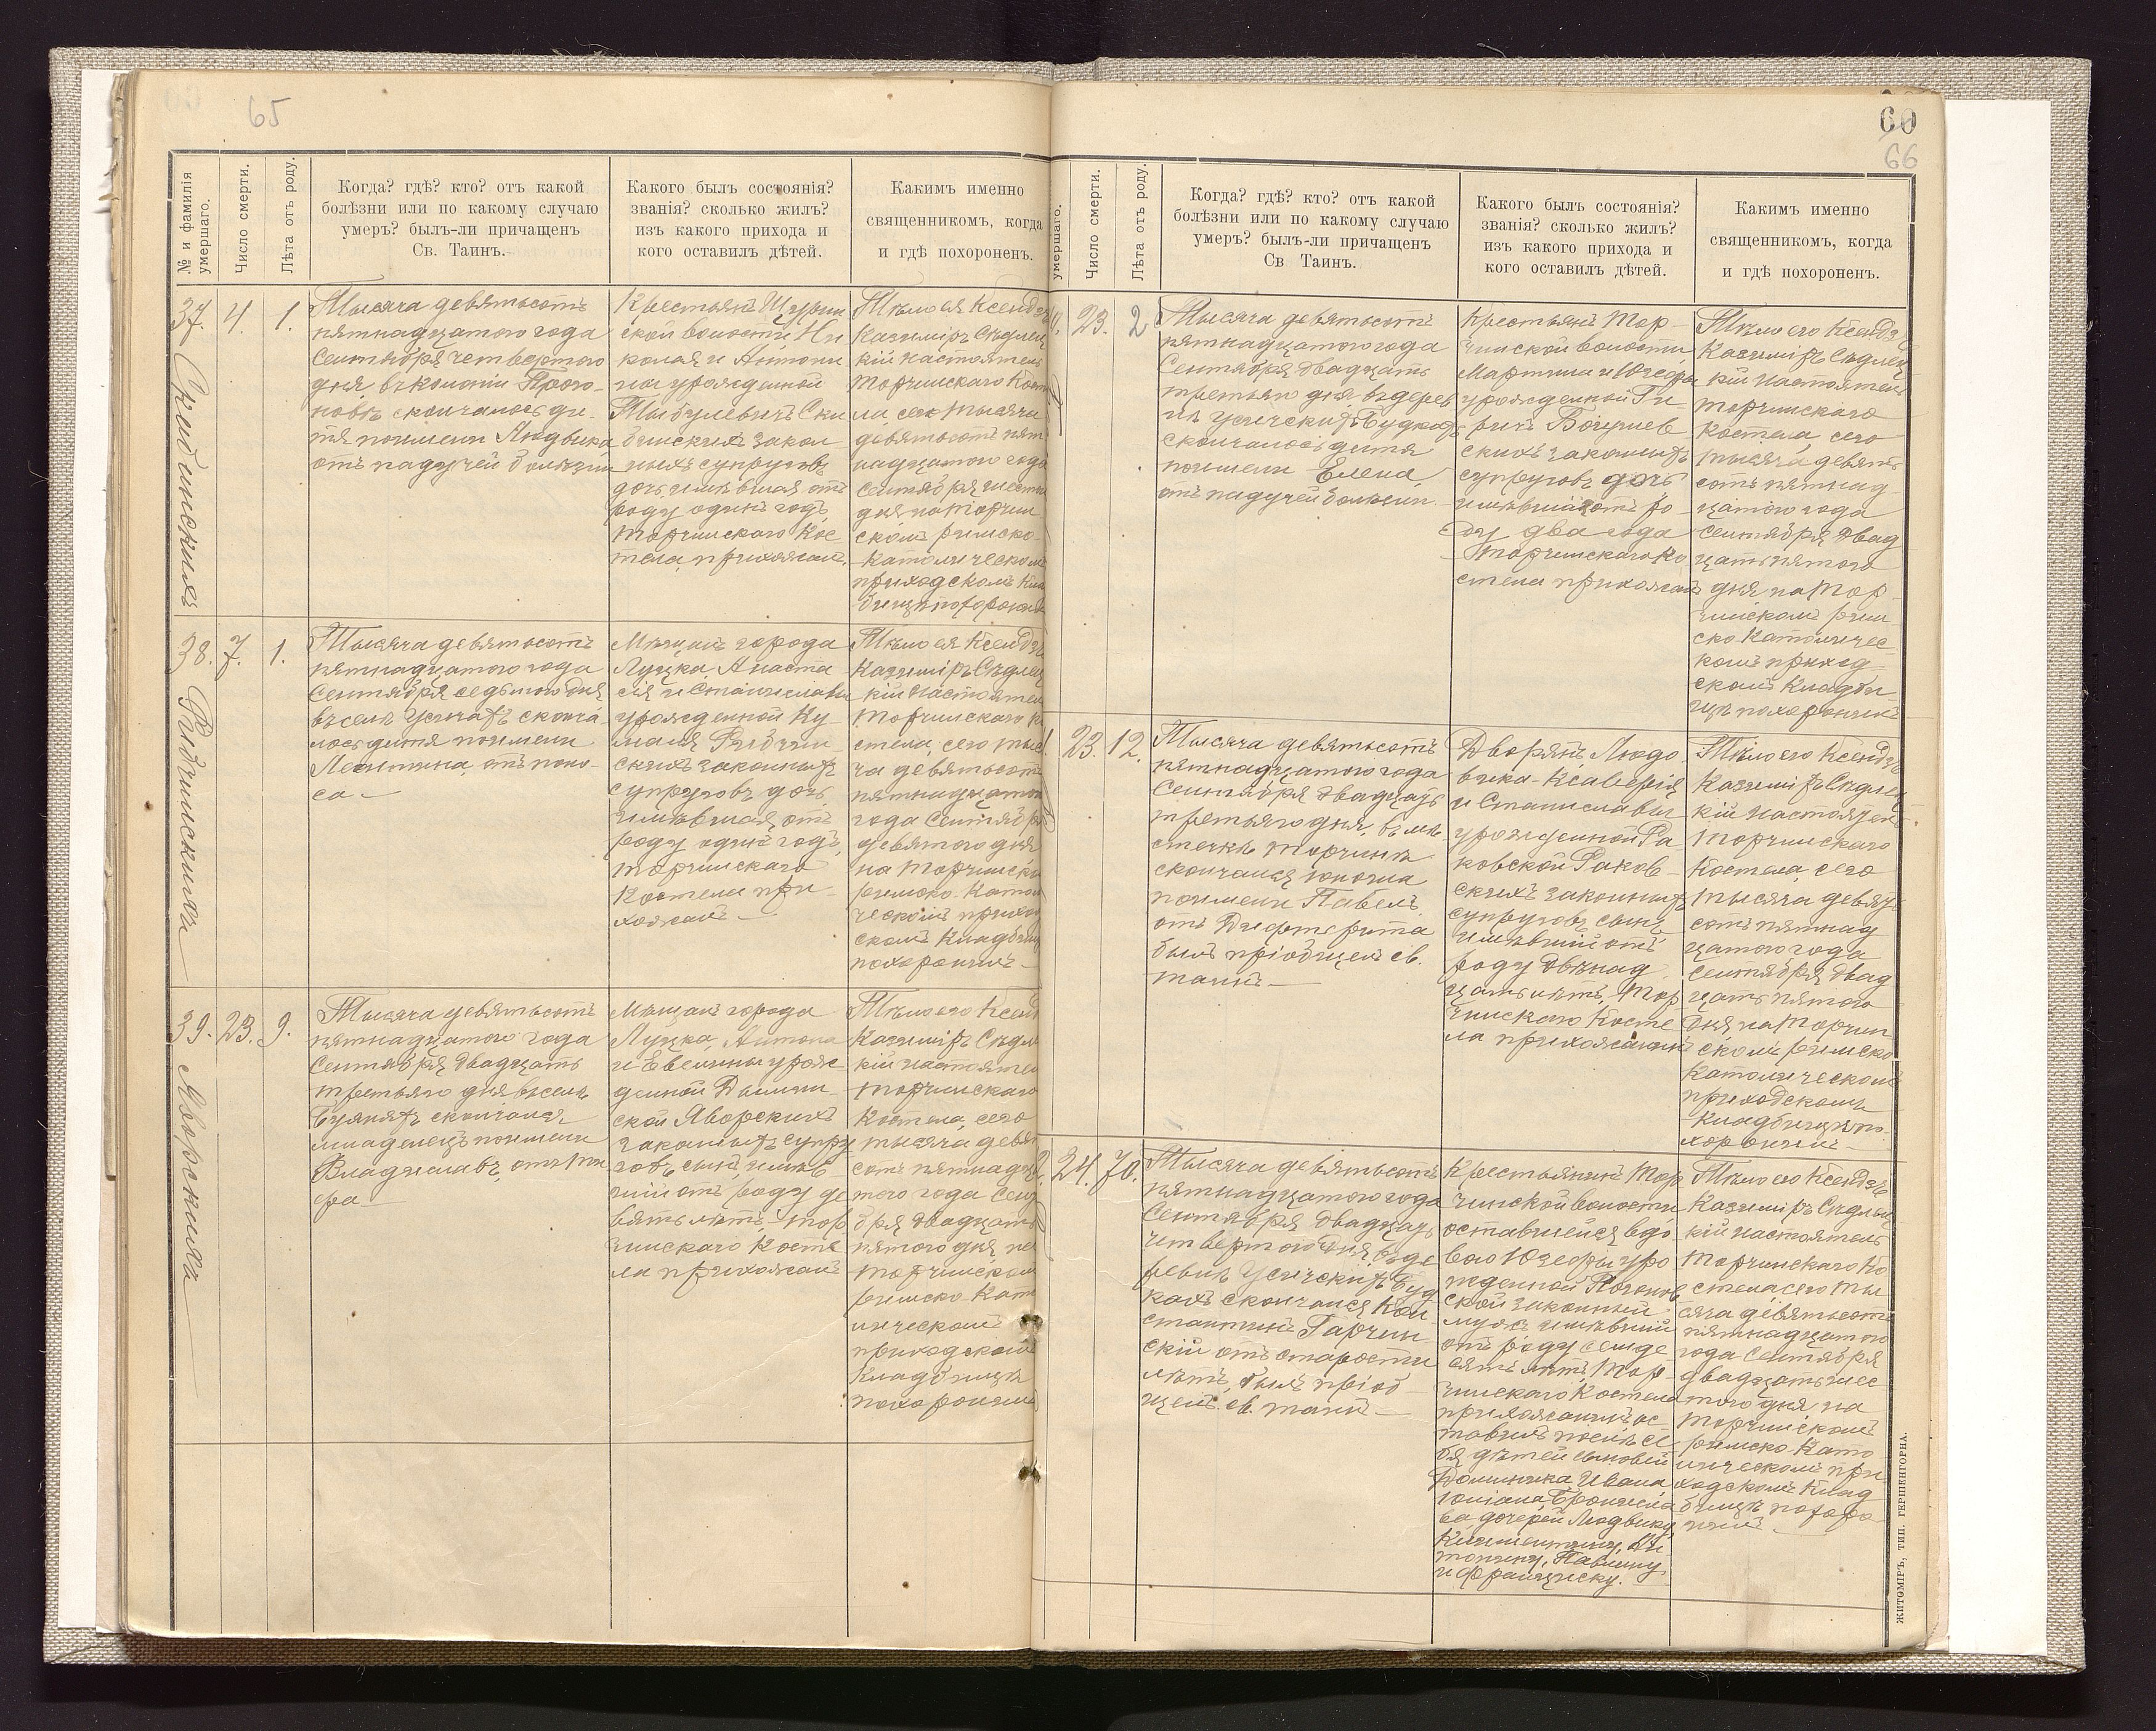 65
№ и фамилія умершаго.
Число смерти.
Лѣта отъ роду.
Когда? гдѣ? кто? отъ какой
болѣзни или по какому случаю
умеръ? былъ-ли причащенъ
Св. Таинъ.
Какого былъ состоянія?
званія? сколько жилъ?
изъ какого прихода и
кого оставилъ дѣтей.
Какимъ именно
священникомъ, когда
и гдѣ похороненъ.
37.
Скибинскихъ
4.
1.
Тысяча девятьсотъ
пятнадцатого года
Сентября четвертого
дня, въ колоніи
скончалось ди-
тя по имени Людвика,
отъ падучей болѣзни
Крестьянъ Щурин
ской волости, Ни
колая и Антони
ны урожденной
Ски
бинскихъ закон
ныхъ супруговъ
дочь, имѣвшая отъ
роду одинъ годъ,
Торчинскаго Кос
тела прихожан.
Тѣло ея Ксендзъ
Казимiръ Сѣдлец
кій настоятель
Торчинскаго Кост
ла, сего тысяча
девятьсотъ пят
надцатого года
Сентября шестого
дня на Торчин
скомъ римско-
католическомъ
приходскомъ Клад
бищѣ похоронилъ
38.
Рыбчинскихъ
7.
1.
Тысяча девятьсотъ
пятнадцатого года
Сентября седьмого дня
въ селѣ Усичахъ сконча
лось дитя по имени
Леонтина, отъ поно-
са
Мѣщанъ города
Луцка, Анаста
сія и Станиславы
урожденной Ку
Рыбчин
скихъ законныхъ
супруговъ дочь,
имѣвшая отъ
роду одинъ годъ,
Торчинскаго
Костела при-
хожан.
Тѣло ея Ксендзъ
Казимiръ Сѣдлец
кій настоятель
Торчинскаго Ко
стела, сего тыся
ча девятьсотъ
пятнадцатого
года Сентября
девятого дня
на Торчинском
римско-Католи
ческомъ приход
скомъ Кладбищѣ
похоронилъ
39.
Яворскихъ
23.
9.
Тысяча девятьсотъ
пятнадцатого года
Сентября двадцать
третьяго дня въ селѣ
Буянахъ скончался
младенецъ по имени
Владиславъ, отъ ти
фа
Мѣщанъ города
Луцка, Антона
и Евелины урож
денной
ской Яворскихъ
законныхъ супру
говъ сынъ, имѣв
шій отъ роду де
вять лѣтъ, Тор
чинскаго Косте
ла прихожанъ
Тѣло его Ксендзъ
Казимiръ Сѣдлец
кій настоятель
Торчинскаго
Костела, сего
тысяча девять
сотъ пятнадца
того года Сентя
бря двадцать
пятого дня на
Торчинскомъ
римско-Като
лическомъ
приходскомъ
Кладбищѣ
похоронилъ
60
66
умершаго.
Число смерти.
Лѣта отъ роду.
Когда? гдѣ? кто? отъ какой
болѣзни или по какому случаю
умеръ? былъ-ли причащенъ
Св Таинъ.
Какого былъ состоянія?
званія? сколько жилъ?
изъ какого прихода и
кого оставилъ дѣтей.
Какимъ именно
священникомъ, когда
и гдѣ похороненъ.
23.
2
Тысяча девятьсотъ
пятнадцатого года
Сентября двадцать
третьяго дня въ дерев
нѣ Усичскихъ Будкахъ
скончалось дитя
по имени Елена,
отъ падучей болѣзни.
Крестьянъ Тор-
чинской волости,
Мартина и Юзефы
урожденной
скихъ законныхъ
супруговъ дочь
имѣвшая отъ ро-
ду два года
Торчинскаго Ко
стела прихожан
Тѣло его Ксендзъ
Казимiръ Сѣдлец
кій настоятель
Торчинскаго
Костела, сего
тысяча девять
сотъ пятнад
цатого года
Сентября двад
цать пятого
дня на Тор-
чинскомъ рим
ско Католичес
комъ приход
скомъ Кладби
щѣ похоронилъ
23.
12.
Тысяча девятьсотъ
пятнадцатого года
Сентября двадцать
третьяго дня, въ мѣ-
стечкѣ Торчинѣ
скончался юноша
по имени Павелъ
отъ Дифтерита
былъ пріобщенъ св.
таинъ
Дворянъ, Людо
вика-Ксаверія
и Станиславы
урожденной Ра-
ковской Раков-
скихъ законныхъ
супруговъ сынъ
имѣвшій отъ
роду двѣнад
цать лѣтъ, Тор
чинскаго Косте
ла прихожанинъ
Тѣло его Ксендзъ
Казимiръ Сѣдлец
кій настоятель
Торчинскаго
Костела, сего
тысяча девять
сотъ пятнад
цатого года
Сентября двад
цать пятого
дня на Торчин
скомъ римско
Католическомъ
приходскомъ
Кладбищѣ по-
хоронилъ
24.
70.
Тысяча девятьсотъ
пятнадцатого года
Сентября двадцать
четвертого дня, въ де
ревнѣ Усичскихъ Буд
кахъ скончался Кон
стантинъ Гарчин
скій отъ старости
лѣтъ, былъ пріоб-
щенъ св. таинъ
Крестьянинъ Тор
чинской волости
оставшейся вдо
вою Юзефы уро
жденной
ской законный
мужъ имѣвшій
отъ роду семьде
сятъ лѣтъ, Тор-
чинскаго Костела
прихожанинъ, ос
тавилъ послѣ се
бя дѣтей сыновей
Доминика, Ивана
Юліана, Бронисла
ва, дочерей Людвику,
Клементину, Ан
тонину, Павлину
и Францишку.
Тѣло его Ксендзъ
Казимiръ Сѣдлец
кій настоятель
Торчинскаго Ко
стела сего ты
сяча девятьсотъ
пятнадцатого
года Сентября
двадцать шес
того дня на
Торчинскомъ
римско-Като
лическомъ при
ходскомъ Клад
бищѣ похоро
нилъ
ЖИТОМІРЪ, ТИП. ГЕРШЕНГОРНА.